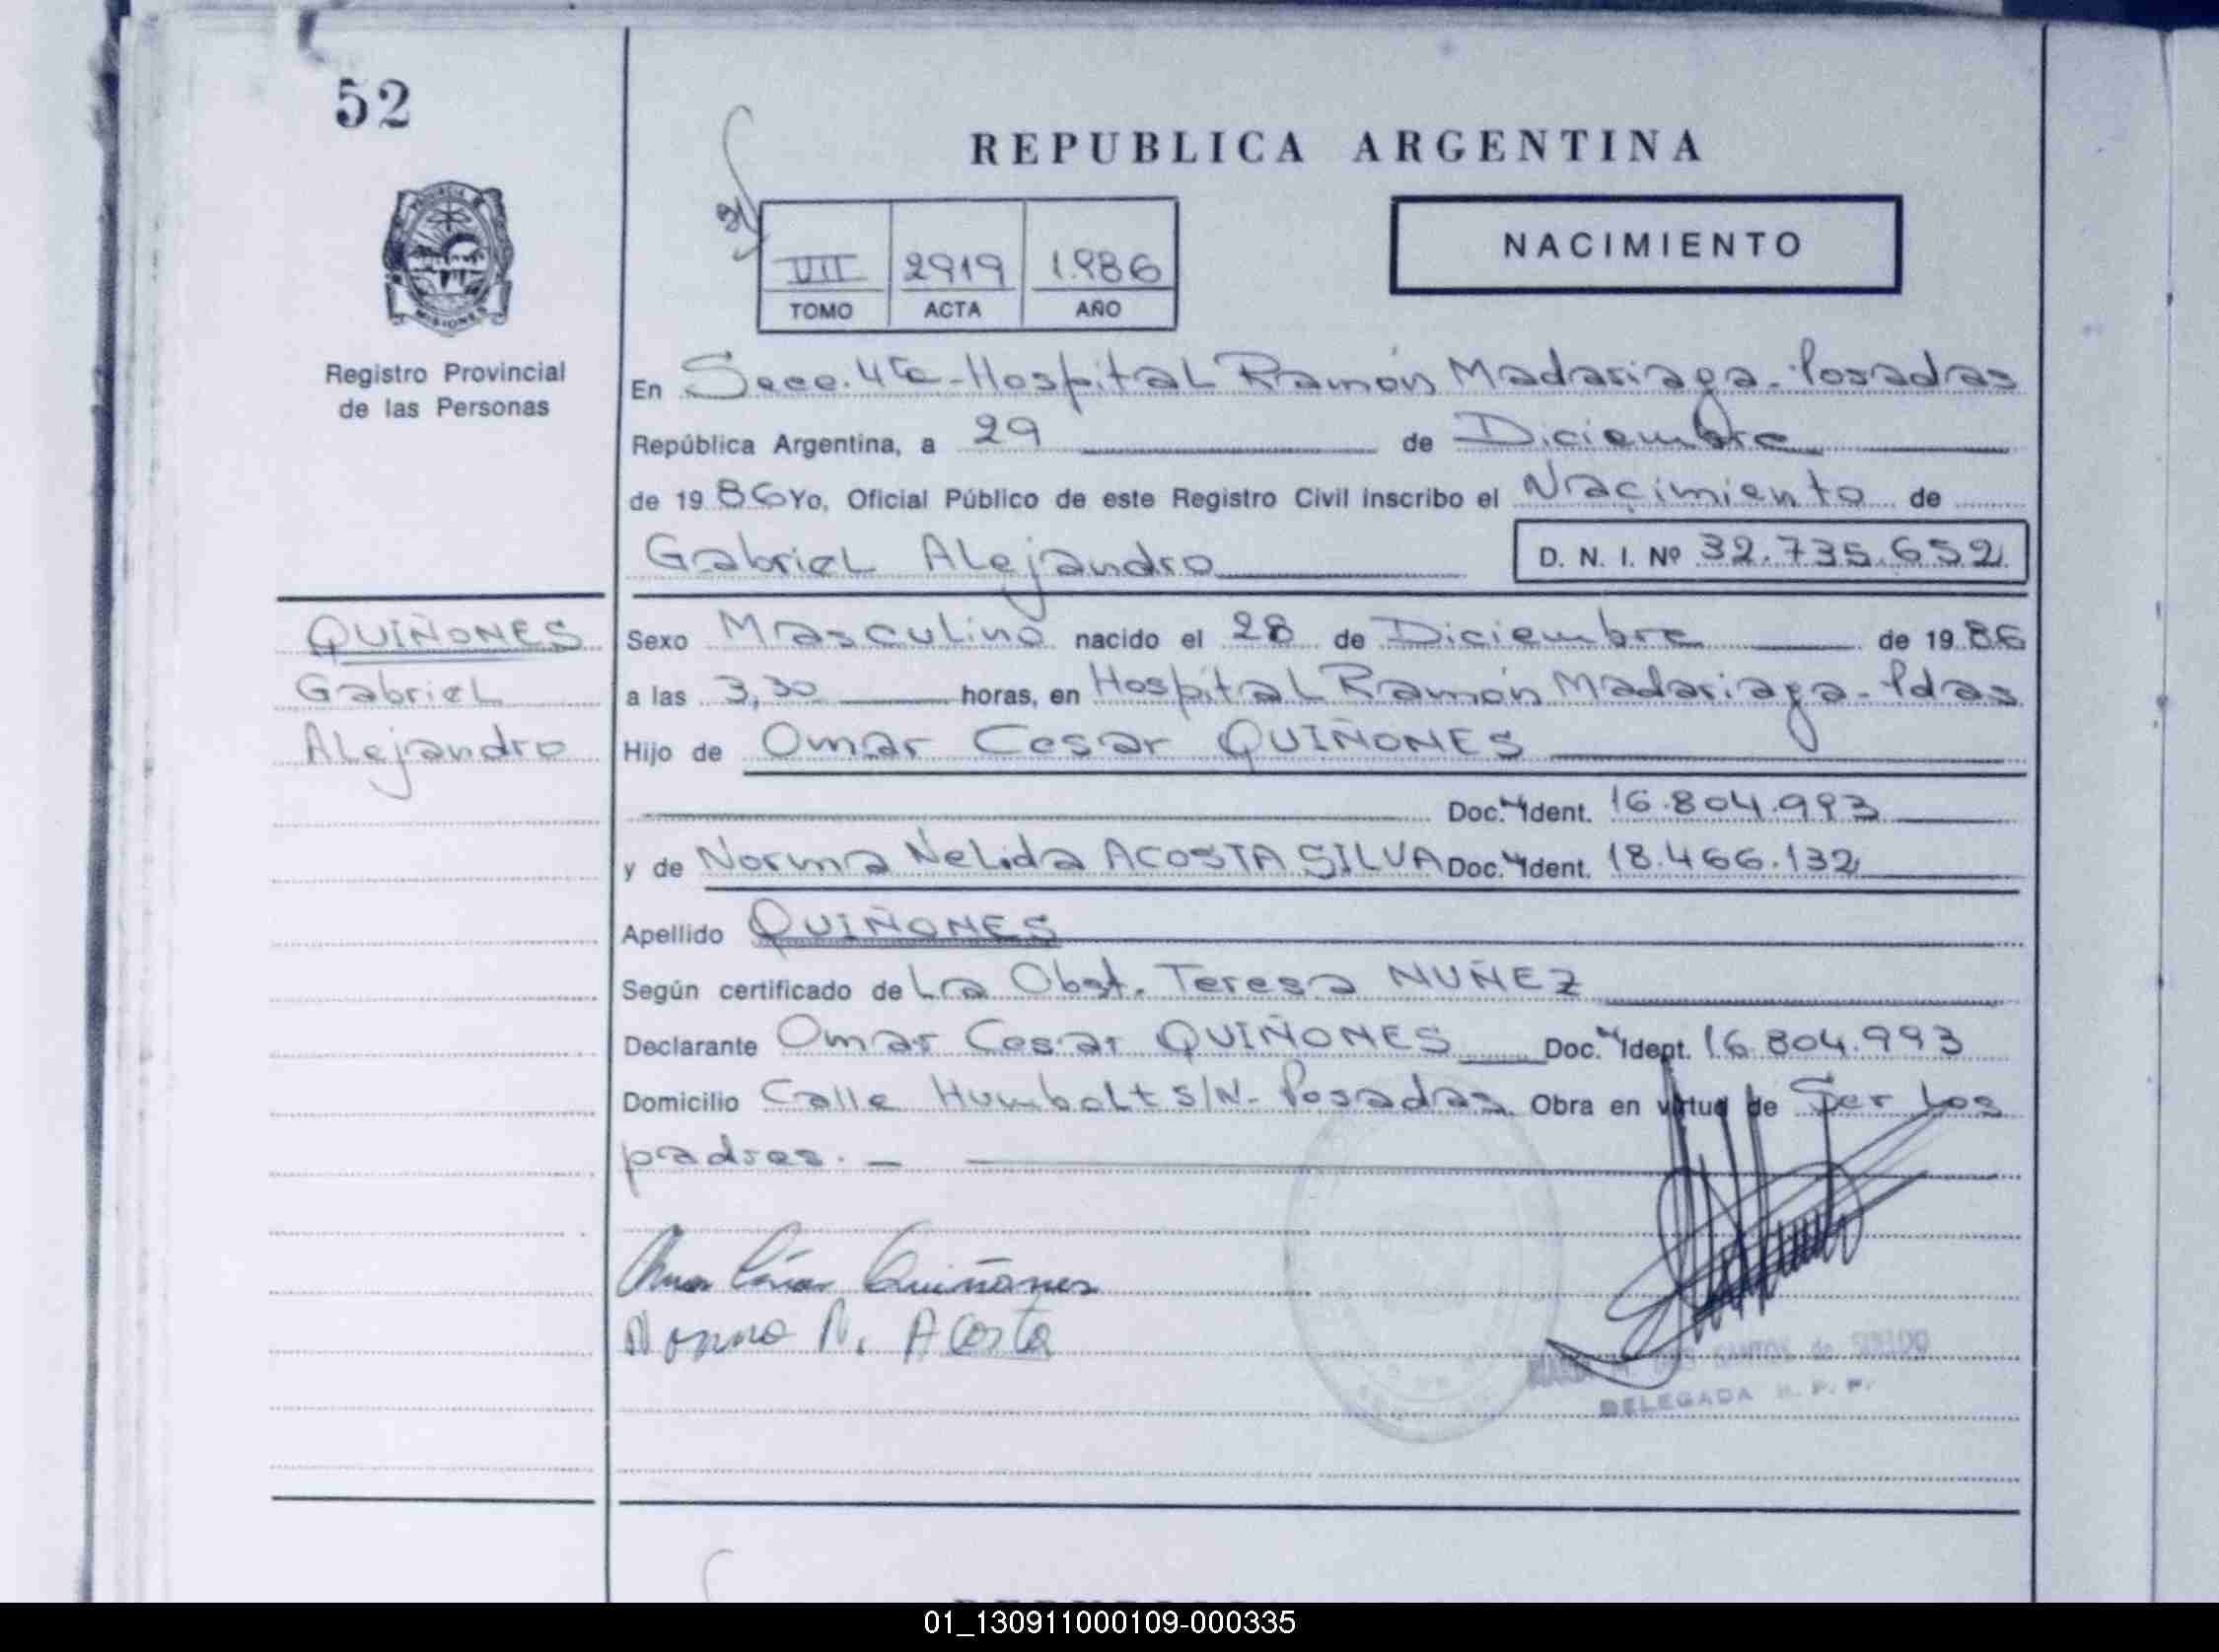 52
REPUBLICA ARGENTINA
VII 2919 1.986
TOMO ACTA AÑO
NACIMIENTO
MISIONES
Registro Provincial
de las Personas
En Secc. 4ta - Hospital Ramón Madariaga - Posadas
República Argentina, a 29 de Diciembre
de 19 86 Yo, Oficial Público de este Registro Civil inscribo el Nacimiento de
Gabriel Alejandro D. N. I. Nº 32.735.652
QUIÑONES
Gabriel
Alejandro
Sexo Masculino nacido el 28 de Diciembre de 19 86
a las 3,30 horas, en Hospital Ramón Madariaga - Pdas
Hijo de Omar Cesar QUIÑONES
Doc. Ident. 16.804.993
y de Norma Nelida ACOSTA SILVA Doc. Ident. 18.466.132
Apellido QUIÑONES
Según certificado de La Obst. Teresa NUÑEZ
Declarante Omar Cesar QUIÑONES Doc. Ident. 16.804.993
Domicilio Calle Humbolt S/N - Posadas Obra en virtud de Ser los
padres. -
Omar César Quiñones
Norma N. Acosta
SANTOS de
DELEGADA R. P. P.
01_130911000109-000335